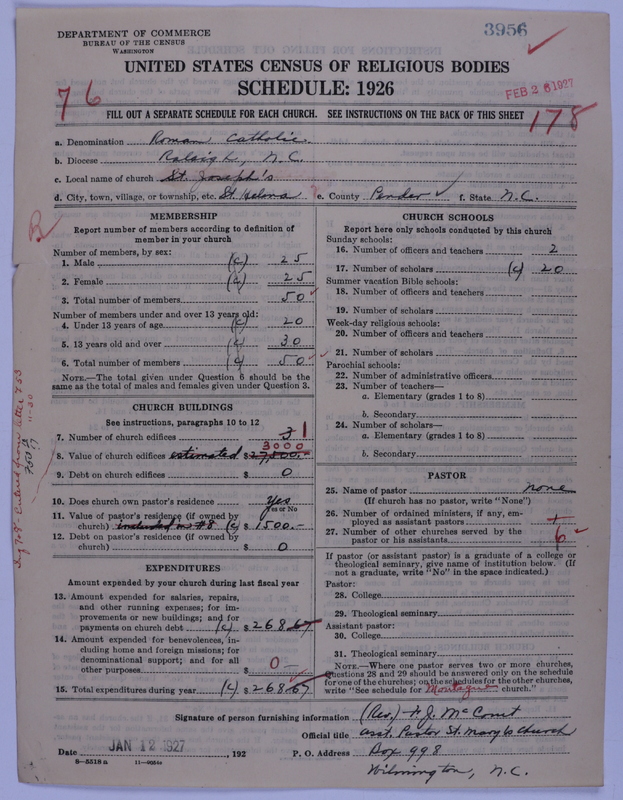 DEPARTMENT OF COMMERCE
BUREAU OF THE CENSUS
WASHINGTON
3956
UNITED STATES CENSUS OF RELIGIOUS BODIES
SCHEDULE: 1926
76
FEB 26 1927
178
FILL OUT A SEPARATE SCHEDULE FOR EACH CHURCH. SEE INSTRUCTIONS ON THE BACK OF THIS SHEET
a. Denomination Roman Catholic
b. Diocese Raleigh, N.C.
c. Local name of church St. Joseph's
d. City, town, village, or township, etc. St. Helena e. County Pender f. State N.C.
MEMBERSHIP
Report number of members according to definition of
member in your church
Number of members, by sex:
1. Male (c) 25
2. Female (c) 25
3. Total number of members 50
Number of members under and over 13 years old:
4. Under 13 years of age (c) 20
5. 13 years old and over (c) 30
6. Total number of members (c) 50
NOTE.—The total given under Question 6 should be the
same as the total of males and females given under Question 3.
CHURCH BUILDINGS
See instructions, paragraphs 10 to 12
7. Number of church edifices 3 1
3000
8. Value of church edifices estimated $ 27,500.-
9. Debt on church edifices $ 0
10. Does church own pastor's residence Yes
Yes or No
11. Value of pastor's residence (if owned by
church) included in #8 (c) $ 1500.-
12. Debt on pastor's residence (if owned by
church) $ 0
EXPENDITURES
Amount expended by your church during last fiscal year
13. Amount expended for salaries, repairs,
and other running expenses; for im-
provements or new buildings; and for
payments on church debt (c) $ 268.67
14. Amount expended for benevolences, in-
cluding home and foreign missions; for
denominational support; and for all
other purposes $ 0-
15. Total expenditures during year (c) $ 268.67
CHURCH SCHOOLS
Report here only schools conducted by this church
Sunday schools:
16. Number of officers and teachers 2
17. Number of scholars (c) 20
Summer vacation Bible schools:
18. Number of officers and teachers
19. Number of scholars
Week-day religious schools:
20. Number of officers and teachers
21. Number of scholars
Parochial schools:
22. Number of administrative officers
23. Number of teachers—
a. Elementary (grades 1 to 8)
b. Secondary
24. Number of scholars—
a. Elementary (grades 1 to 8)
b. Secondary
PASTOR
25. Name of pastor none
(If church has no pastor, write "None")
26. Number of ordained ministers, if any, em-
ployed as assistant pastors
27. Number of other churches served by the
pastor or his assistants 6
If pastor (or assistant pastor) is a graduate of a college or
theological seminary, give name of institution below. (If
not a graduate, write "No" in the space indicated.)
Pastor:
28. College
29. Theological seminary
Assistant pastor:
30. College
31. Theological seminary
NOTE.—Where one pastor serves two or more churches,
questions 28 and 29 should be answered only on the schedule
for one of the churches; on the schedules for the other churches,
write "See schedule for Montague church."
Signature of person furnishing information (Rev.) F. J. McCourt
Official title asst. Pastor St. Mary's Church
Date JAN 12 1927, 192
P. O. Address Box 998
Wilmington, N.C.
8-5518a 11-9056